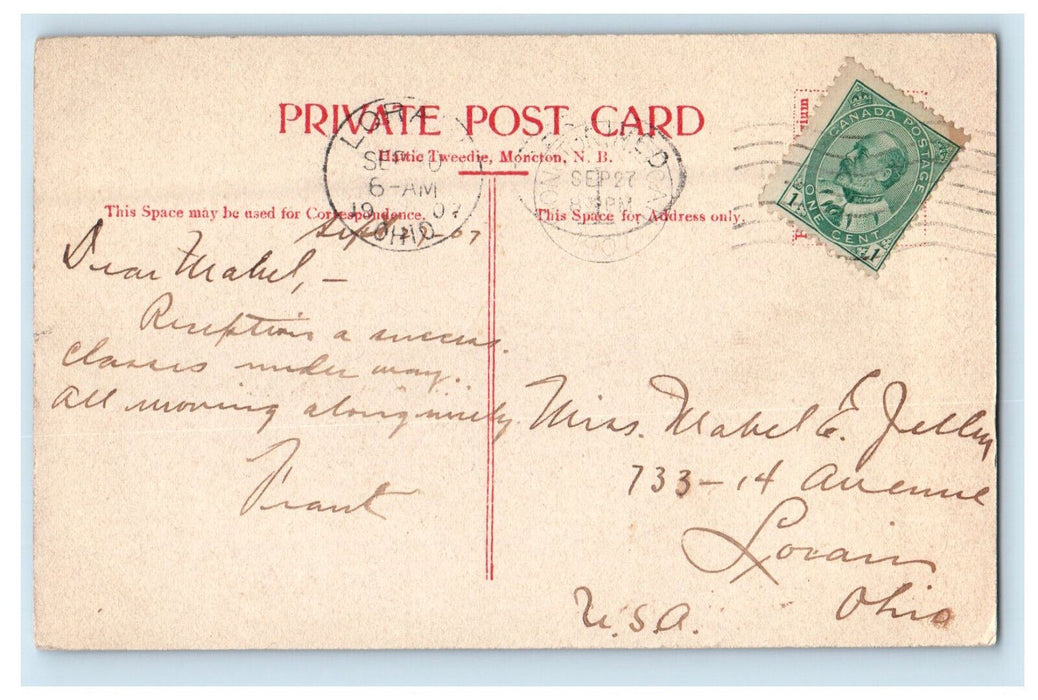 PRIVATE POST CARD
Hattie Tweedie, Moncton, N. B.
LORA
SEP 0
6-AM
19 07
OHIO
SEP 27
PM
CANADA POSTAGE
1 ONE CENT 1
This Space may be used for Correspondence.
This Space for Address only.
Sept 27/07
Dear Mabel, –
Reception a success.
Classes under way.
All moving along nicely
Frank
Miss. Mabel E. Jelley
733-14 Avenue
Lorain
Ohio
U.S.A.